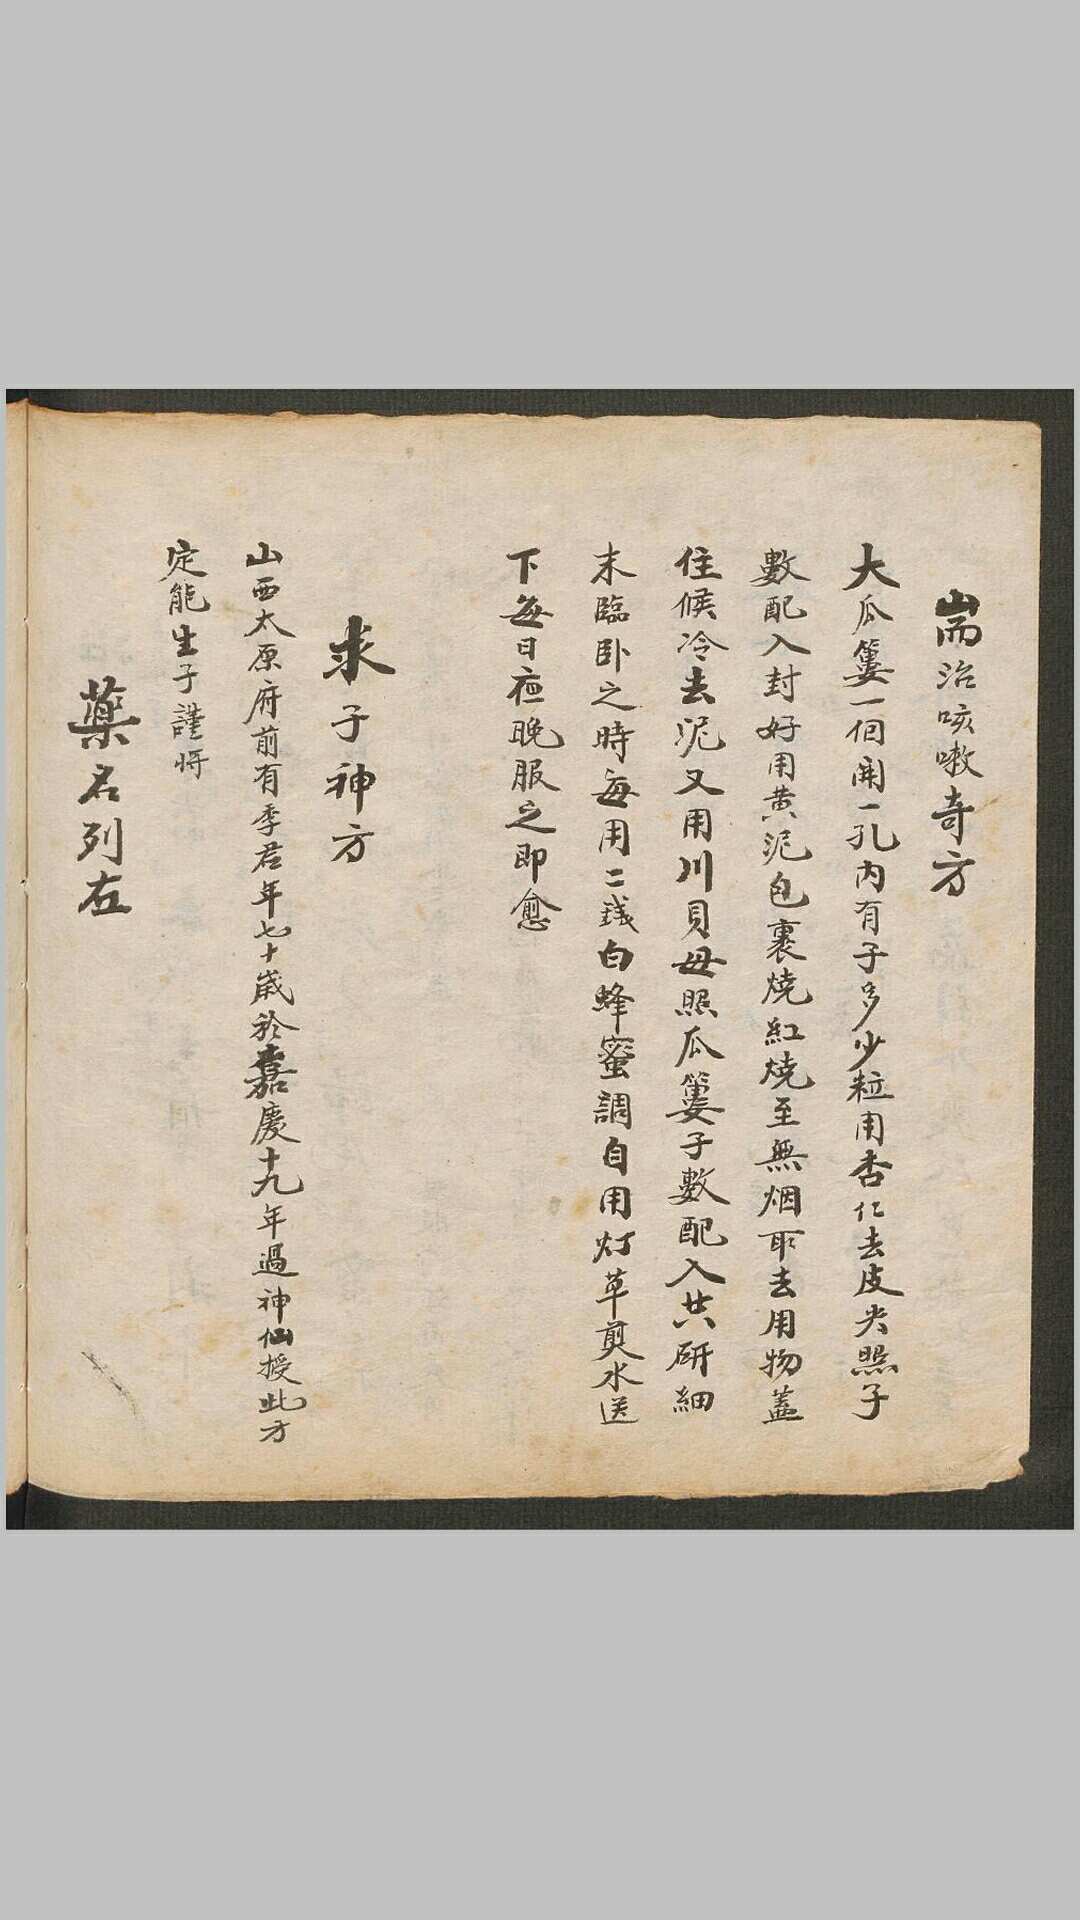 耑治咳嗽奇方
大瓜簍一個開一孔內有子多少粒用杏仁去皮尖照子
數配入封好用黃泥包裹燒紅燒至無烟取去用物蓋
住候冷去泥又用川貝母照瓜簍子數配入共研細
末臨卧之時每用二錢白蜂蜜調自用灯草煎水送
下每日夜晚服之即愈
求子神方
山西太原府前有季君年七十歲於嘉慶十九年過神仙授此方
定能生子謹將
藥名列左